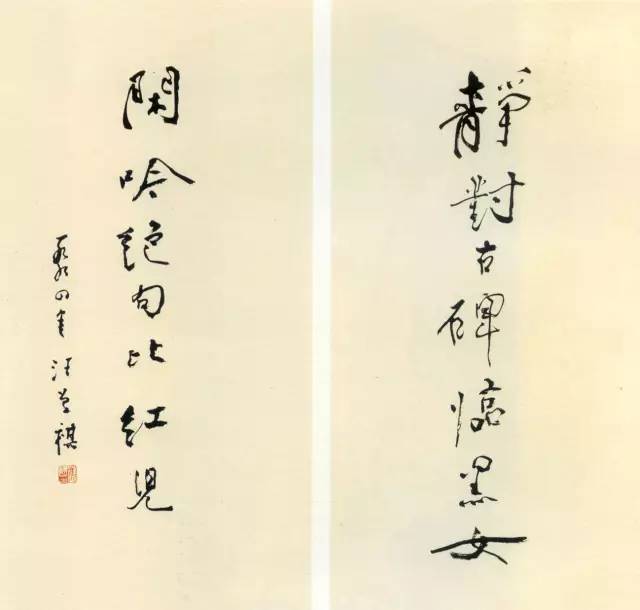 靜對古碑臨黑女
閑吟絕句比紅兒
汪曾祺